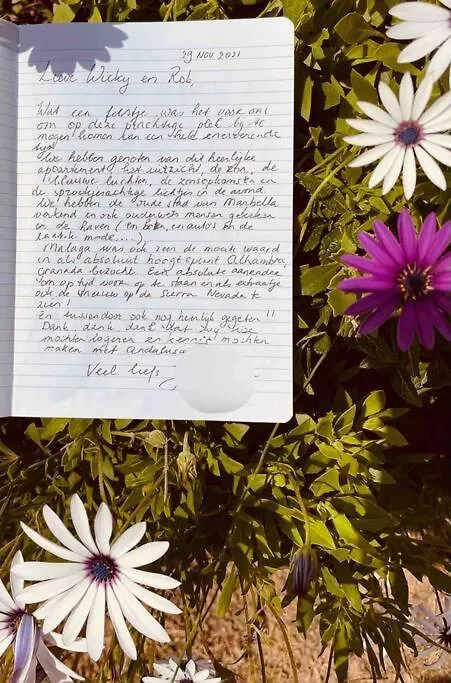 29 NOV 2021
Lieve Wicky en Rob,
Wat een feestje was het voor ons
om op deze prachtige plek bij te
mogen komen van een heel enerverende
tijd!
We hebben genoten van dit heerlijke
appartement, het uitzicht, de zon, de
blauwe luchten, de zonsopkomsten en
de sprookjesachtige lichtjes in de avond.
We hebben de oude stad van Marbella
verkend en ook ouderwets mensen gekeken
in de haven (en boten, en auto's en de
laatste mode....)
Malaga was ook zeer de moeite waard
en als absoluut hoogtepunt Alhambra,
Granada bezocht. Een absolute aanrader
om op tijd voor op te staan en als extraatje
ook de sneeuw op de Sierra Nevada te
zien!
En tussendoor ook nog heerlijk gegeten!!
Dank, dank, dank dat we hier
mochten logeren en kennis mochten
maken met Andalusie
Veel liefs